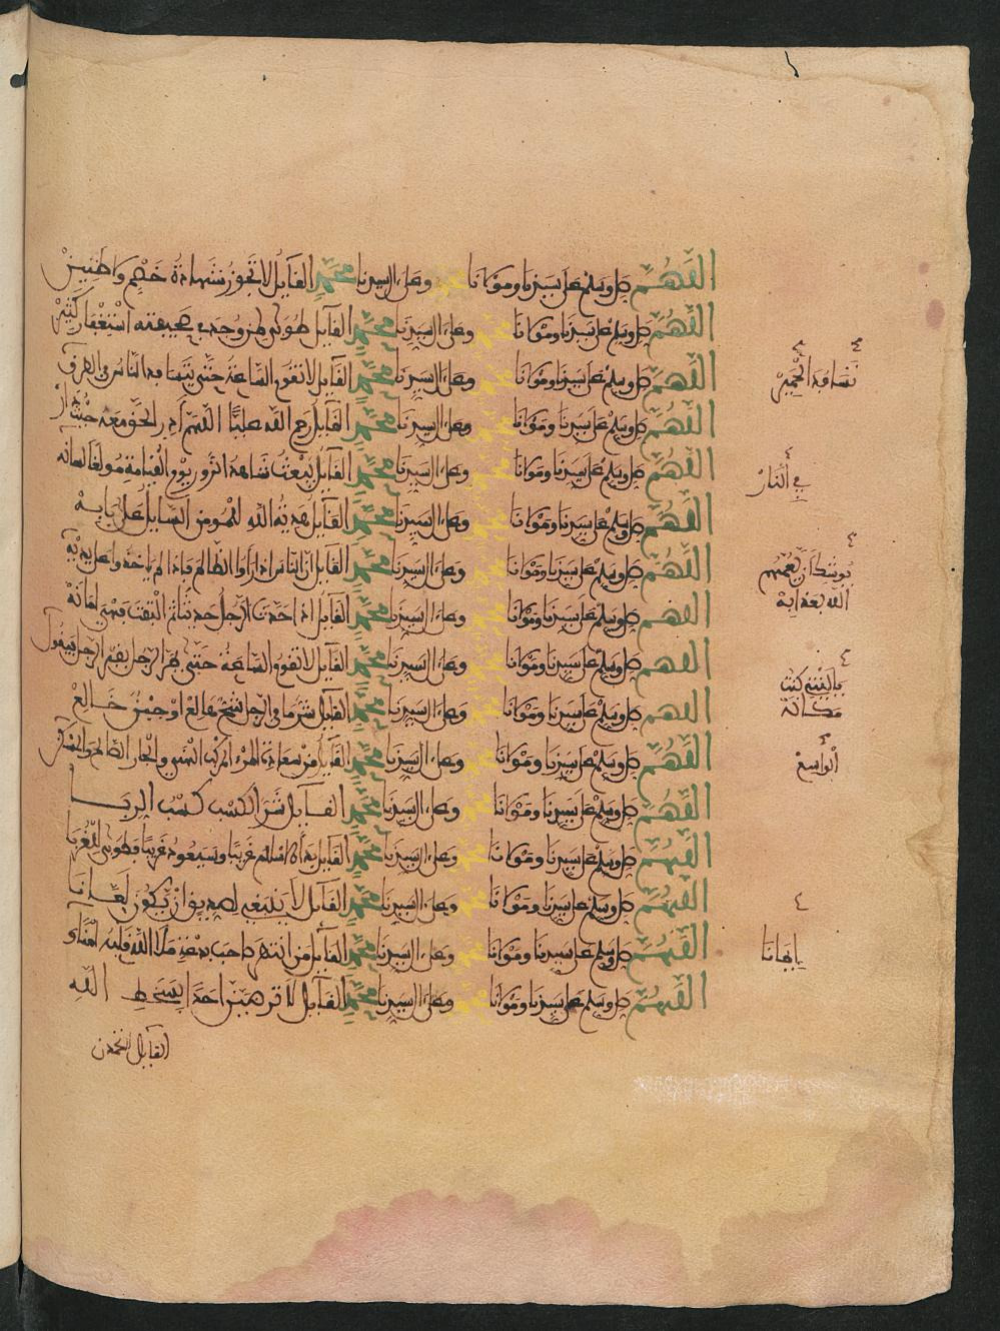 اللهم صل وسلم على سيدنا ومولانا محمد وعلى ال سيدنا محمد القايل لا تجوز شهادة خصم ولا ظنين
اللهم صل وسلم على سيدنا ومولانا محمد وعلى ال سيدنا محمد القايل طوبى لمن وجد في صحيفته استغفار كثير
اللهم صل وسلم على سيدنا ومولانا محمد وعلى ال سيدنا محمد القايل لا تقوم الساعة حتى يتسافد الناس في الطرق
تسافد الحمير
اللهم صل وسلم على سيدنا ومولانا محمد وعلى ال سيدنا محمد القايل رحم الله عليا اللهم ادر الحق معه حيث دار
اللهم صل وسلم على سيدنا ومولانا محمد وعلى ال سيدنا محمد القايل يبعث شاهد الزور يوم القيامة مولغا لسانه
في النار
اللهم صل وسلم على سيدنا ومولانا محمد وعلى ال سيدنا محمد القايل هدية الله للمومن السايل على بابه
اللهم صل وسلم على سيدنا ومولانا محمد وعلى ال سيدنا محمد القايل ان الناس اذا راوا الظالم فلم ياخذوا على يديه
يوشك ان يعمهم
الله بعذابه
اللهم صل وسلم على سيدنا ومولانا محمد وعلى ال سيدنا محمد القايل اذا حدث الرجل حديثا ثم التفت فهي امانة
اللهم صل وسلم على سيدنا ومولانا محمد وعلى ال سيدنا محمد القايل لا تقوم الساعة حتى يمر الرجل بقبر الرجل فيقول
ياليتني كنت
مكانه
اللهم صل وسلم على سيدنا ومولانا محمد وعلى ال سيدنا محمد القايل شر ما في الرجل شح هالع او جبن خالع
اللهم صل وسلم على سيدنا ومولانا محمد وعلى ال سيدنا محمد القايل من سعادة المرء المركب الهني والجار الصالح والمسكن
الواسع
اللهم صل وسلم على سيدنا ومولانا محمد وعلى ال سيدنا محمد القايل شر الكسب كسب الربا
اللهم صل وسلم على سيدنا ومولانا محمد وعلى ال سيدنا محمد القايل بدأ الاسلام غريبا وسيعود غريبا فطوبى للغربا
اللهم صل وسلم على سيدنا ومولانا محمد وعلى ال سيدنا محمد القايل لا ينبغي لصديق ان يكون لعانا
اللهم صل وسلم على سيدنا ومولانا محمد وعلى ال سيدنا محمد القايل من انتهر صاحب بدعة ملا الله قلبه امنا و
ايمانا
اللهم صل وسلم على سيدنا ومولانا محمد وعلى ال سيدنا محمد القايل لا ترضين احدا بسخط الله
القايل